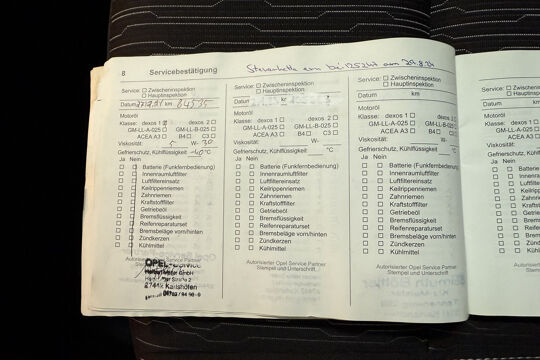 8 Servicebestätigung
Steuerkette
Service: ☐ Zwischeninspektion
☐ Hauptinspektion
Datum km
Motoröl
Klasse: dexos 1 dexos 2 ☐
GM-LL-A-025 ☐ GM-LL-B-025 ☐
ACEA A3 ☐ B4 ☐ C3 ☐
Viskosität: 5 W- 30
Gefrierschutz, Kühlflüssigkeit -40°C
Ja Nein
☐ ☐ Batterie (Funkfernbedienung)
☐ ☐ Innenraumluftfilter
☐ ☐ Luftfiltereinsatz
☐ ☐ Keilrippenriemen
☐ ☐ Zahnriemen
☐ ☐ Kraftstofffilter
☐ ☐ Getriebeöl
☐ ☐ Bremsflüssigkeit
☐ ☐ Reifenreparaturset
☐ ☐ Bremsbeläge vorn/hinten
☐ ☐ Zündkerzen
☐ ☐ Kühlmittel
Autorisierter Opel Service Partner
OPEL-Service
Karlshöfen
Service: ☐ Zwischeninspektion
☐ Hauptinspektion
Datum km
Motoröl
Klasse: dexos 1 ☐ dexos 2 ☐
GM-LL-A-025 ☐ GM-LL-B-025 ☐
ACEA A3 ☐ B4 ☐ C3 ☐
Viskosität: W-
Gefrierschutz, Kühlflüssigkeit °C
Ja Nein
☐ ☐ Batterie (Funkfernbedienung)
☐ ☐ Innenraumluftfilter
☐ ☐ Luftfiltereinsatz
☐ ☐ Keilrippenriemen
☐ ☐ Zahnriemen
☐ ☐ Kraftstofffilter
☐ ☐ Getriebeöl
☐ ☐ Bremsflüssigkeit
☐ ☐ Reifenreparaturset
☐ ☐ Bremsbeläge vorn/hinten
☐ ☐ Zündkerzen
☐ ☐ Kühlmittel
Autorisierter Opel Service Partner
Stempel und Unterschrift
Service: ☐ Zwischeninspektion
☐ Hauptinspektion
Datum km
Motoröl
Klasse: dexos 1 ☐ dexos 2 ☐
GM-LL-A-025 ☐ GM-LL-B-025 ☐
ACEA A3 ☐ B4 ☐ C3 ☐
Viskosität: W-
Gefrierschutz, Kühlflüssigkeit °C
Ja Nein
☐ ☐ Batterie (Funkfernbedienung)
☐ ☐ Innenraumluftfilter
☐ ☐ Luftfiltereinsatz
☐ ☐ Keilrippenriemen
☐ ☐ Zahnriemen
☐ ☐ Kraftstofffilter
☐ ☐ Getriebeöl
☐ ☐ Bremsflüssigkeit
☐ ☐ Reifenreparaturset
☐ ☐ Bremsbeläge vorn/hinten
☐ ☐ Zündkerzen
☐ ☐ Kühlmittel
Autorisierter Opel Service Partner
Stempel und Unterschrift
Service:
Datum
Motoröl
Klasse:
Viskosität:
Gefrierschutz
Ja Nein